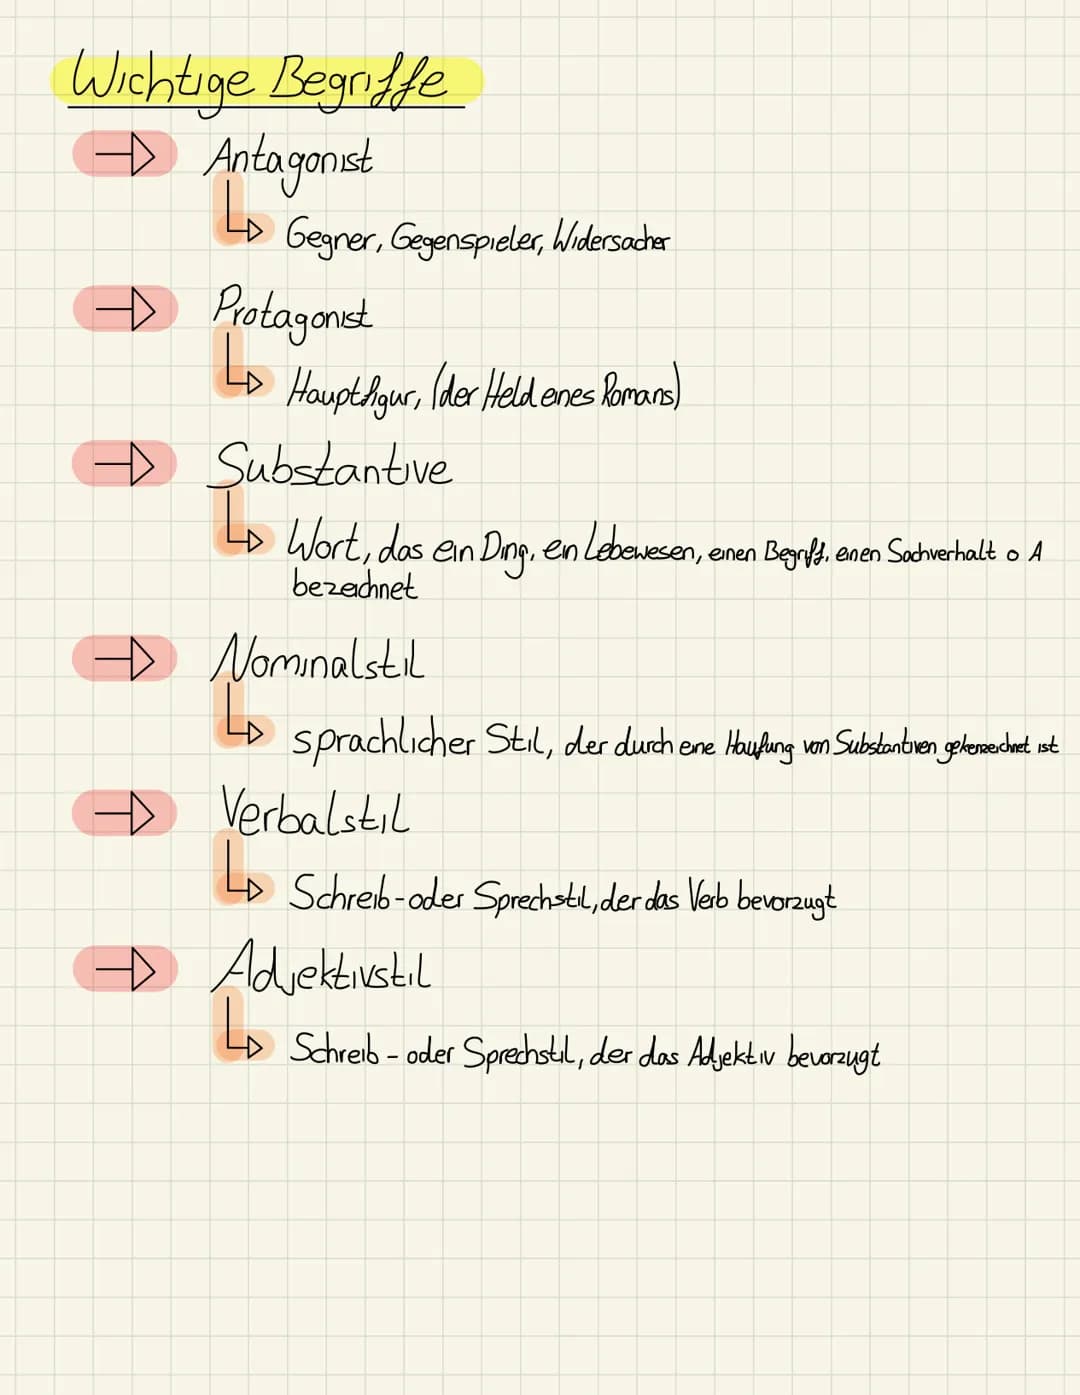 Wichtige Begriffe
Antagonist
Gegner, Gegenspieler, Widersacher
Protagonist
Hauptfigur, (der Held eines Romans)
Substantive
Wort, das ein Ding, ein Lebewesen, einen Begriff, einen Sachverhalt o A
bezeichnet
Nominalstil
sprachlicher Stil, der durch eine Haufung von Substantiven gekenzeichnet ist
Verbalstil
Schreib-oder Sprechstil, der das Verb bevorzugt
Adjektivstil
Schreib - oder Sprechstil, der das Adjektiv bevorzugt